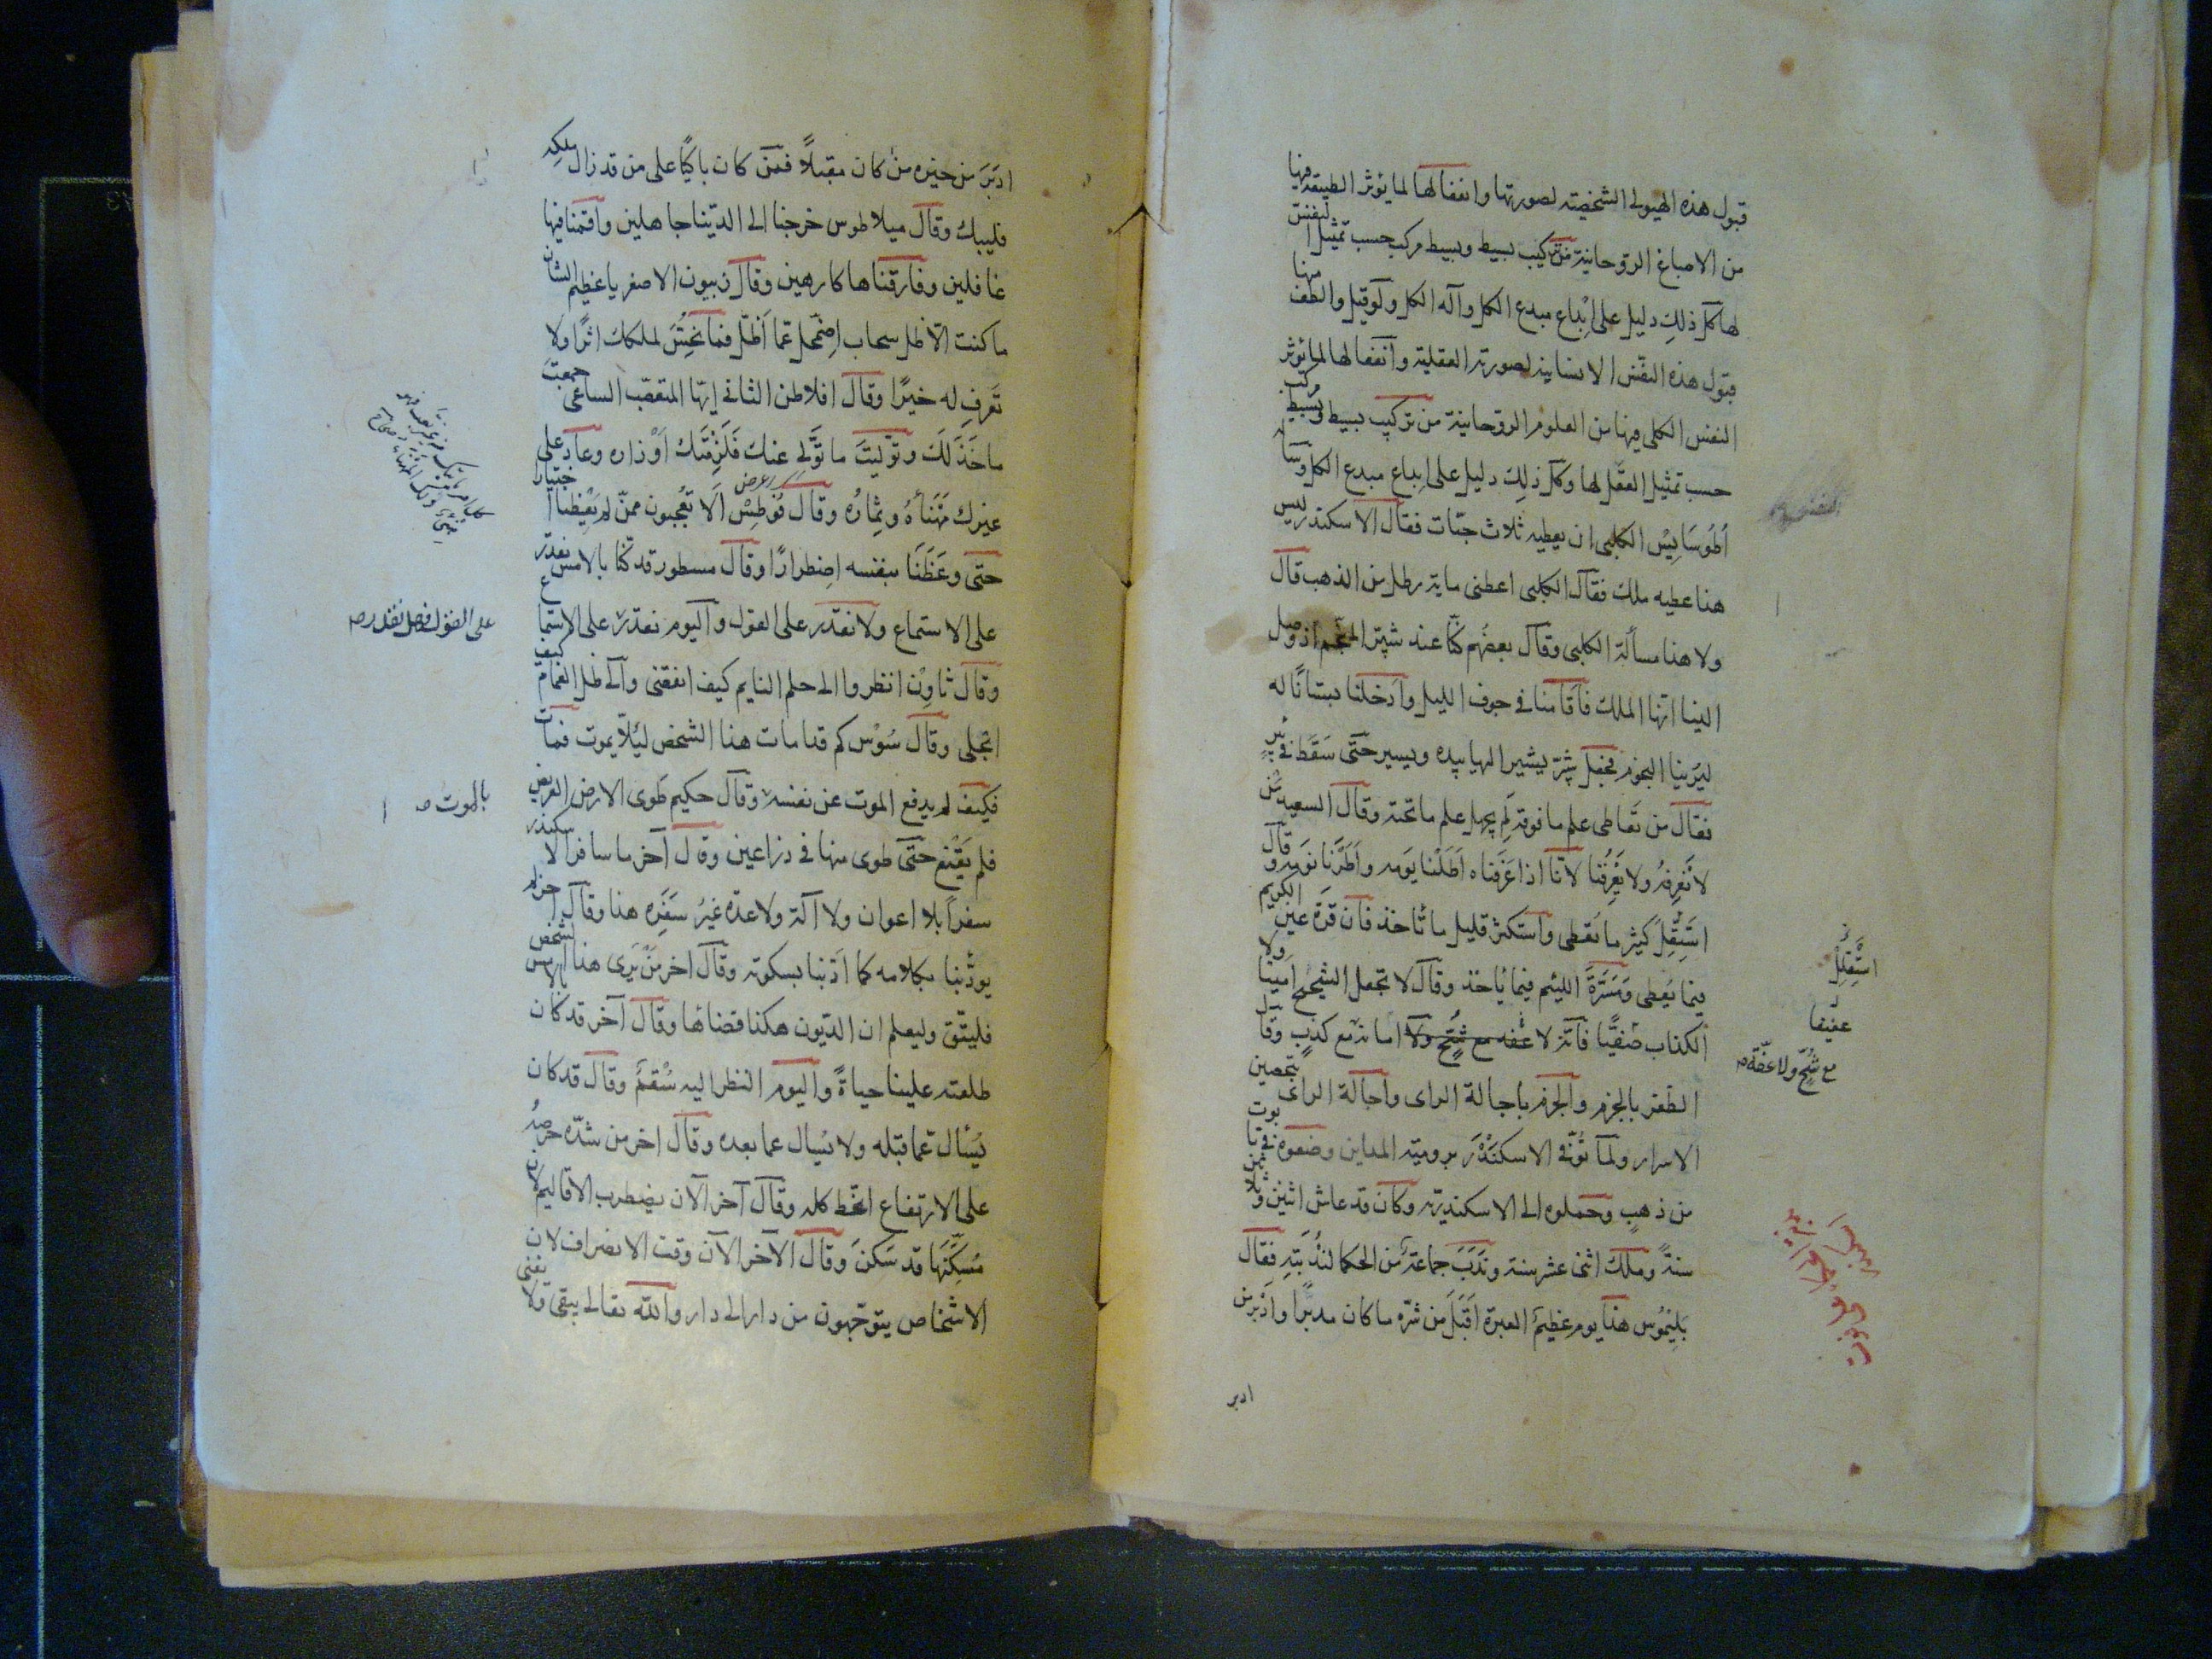 قبول هذه الهيولى الشخصية لصورتها وانفعالها لما يؤثر الطبيعة فيها
من الاصباغ الروحانية من تركيب بسيط وبسيط مركب حسب تمثيل النفس
لها كل ذلك دليل على ابداع مبدع الكل وآله الكل ولو قيل والطف منها
قبول هذه النفس الانسانية لصورته العقلية وانفعالها لما يؤثر
النفس الكلى فيها من العلوم الروحانية من تركيب بسيط وبسيط مركب
حسب تمثيل العقل لها وكل ذلك دليل على ابداع مبدع الكل وسأله
اطوسايس الكلبى ان يعطيه ثلاث حبّات فقال الاسكندر ليس
هذا عطيه ملك فقال الكلبى اعطنى ماية رطل من الذهب قال
ولا هذا مسألة الكلبى وقال بعضهم كنّا عند شبر المنجم اذ وصل
الينا انها الملك فاقامنا فى جوف الليل وادخلنا بستانًا له
ليرينا النجوم فجعل شبر يشير اليها بيده ويسير حتى سقط فى بئر
فقال من تعاطى علم ما فوقه لم يجهل علم ما تحته وقال السعيد من
لا نعرفه ولا يعرفنا لانّا اذا عرفناه اطلنا يومه واطرنا نومه وقال
استقلل كثير ما تعطى واستكثر قليل ما تأخذ فان قرة عين الكريم
فيما يعطى ومسرّة اللئيم فيما يأخذ وقال لا تجعل الشحيح امينا ولا
الكذاب صفيًّا فانه لا عفه مع شحّ ولا امانة مع كذب وقال
الظفر بالحزم والحزم باجالة الراى واجالة الراى بتحصين
الاسرار ولما توفّى الاسكندر برومية المداين وضعوه فى تابوت
من ذهب وحملوه الى الاسكندرية وكان قد عاش اثنين وثلاثين
سنةً وملك اثنى عشر سنة وندب جماعة من الحكما لندبته فقال
بليموس هذا يوم عظيم العبرة اقبل من شرّه ما كان مدبرا وادبر من
ادبر
استقلل
عفيفا
مع شحّ ولا عفّة
ادبر من خيره من كان مقبلاً فمن كان باكيًا على من قد زال ملكه
فليبك وقال ميلاطوس خرجنا الى الدنيا جاهلين واقمنا فيها
غافلين وفارقناها كارهين وقال زبيون الاصغر يا عظيم الشان
ما كنت الّا ظل سحاب اضمحل عمّا اظل فما نحسّ لملكك اثرًا ولا
نعرف له خيرًا وقال افلاطن الثانى ايها المتعصّب الساعى جمعت
ما خذلك وتولّيت ما تولّى عنك فلزمتك اوزاره وعاد على
غيرك مهنأه وثماره وقال فوطس الا تعجبون ممّن لم يعظنا اختيارا
حتى وعظنا بنفسه اضطرارًا وقال مسطور قد كنّا بالامس نقدر
على الاستماع ولا نقدر على القول واليوم نقدر على الاستماع
وقال ثاون انظروا الى حلم النايم كيف انقضى والى ظل الغمام كيف
انجلى وقال سوس كم قد امات هذا الشخص ليلّا يموت فمات
فكيف لم يدفع الموت عن نفسه وقال حكيم طوى الارض العريض
فلم يقنع حتى طوى منها فى ذراعين وقال آخر ما سافر الاسكندر
سفراً بلا اعوان ولا آلة ولا عدة غير سفره هذا وقال آخر لم
يؤدّبنا بكلامه كما ادّبنا بسكوته وقال آخر من يرى هذا الشخص
فليتّق وليعلم ان الديون هكذا قضائها وقال آخر قد كان بالامس
طلعته علينا حياةً واليوم النظر اليه سقمٌ وقال قد كان
يُسأل عما قبله ولا يسأل عما بعده وقال آخر من شدّه حرصه
على الارتفاع انحط كله وقال آخر الآن يضطرب الاقاليم لان
مسكّنها قد سكن وقال الآخر الآن وقت الانصراف لان
الاشخاص يتوجّهون من دار الى دار والله تعالى يبقى ولا يفنى
على القول فهل نقدر
بالموت